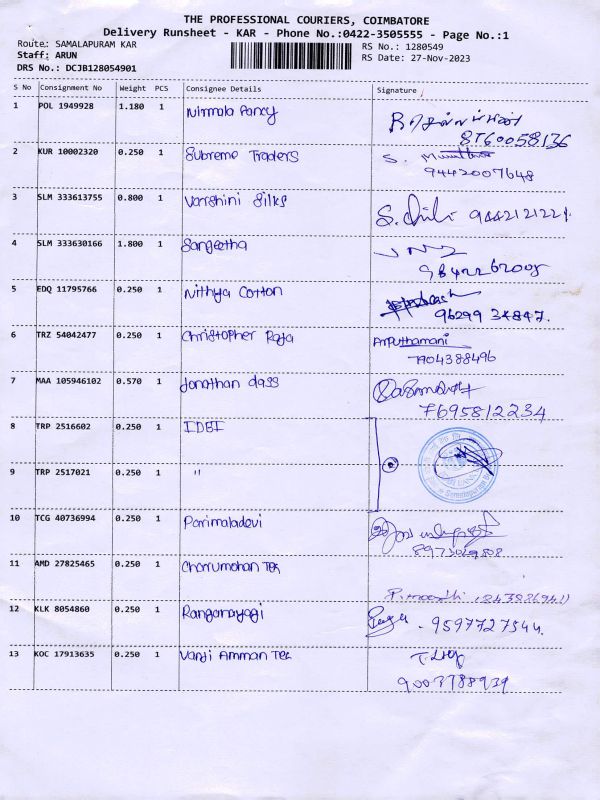 THE PROFESSIONAL COURIERS, COIMBATORE
Delivery Runsheet - KAR - Phone No.:0422-3505555 - Page No.:1
Route: SAMALAPURAM KAR
RS No.: 1280549
Staff: ARUN
RS Date: 27-Nov-2023
DRS No.: DCJB128054901
S No Consignment No Weight PCS Consignee Details Signature
1 POL 1949928 1.180 1 Nirmala Fancy
8760058136
2 KUR 10002320 0.250 1 Subreme Traders S.
9442007648
3 SLM 333613755 0.800 1 Varshini Silks S. 9442121221
4 SLM 333630166 1.800 1 Sangeetha
5 EDQ 11795766 0.250 1 Nithya Cotton
96299 34847.
6 TRZ 54042477 0.250 1 Christopher Raja Arputhamani
7904388496
7 MAA 105946102 0.570 1 Jonathan dass
7695812234
8 TRP 2516602 0.250 1 IDBI
9 TRP 2517021 0.250 1 "
10 TCG 40736994 0.250 1 Parimaladevi
11 AMD 27825465 0.250 1 Charumohan Tex
12 KLK 8054860 0.250 1 Ranganayagi
- 9597727544.
13 KOC 17913635 0.250 1 Vanji Amman Tex
9003788939